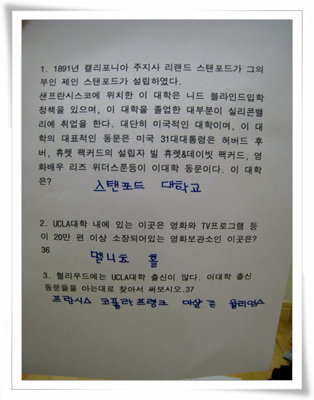 1. 1891년 캘리포니아 주지사 리랜드 스탠포드가 그의
부인 제인 스탠포드가 설립하였다.
샌프란시스코에 위치한 이 대학은 니드 블라인드입학
정책을 있으며, 이 대학을 졸업한 대부분이 실리콘밸
리에 취업을 한다. 대단히 미국적인 대학이며, 이 대
학의 대표적인 동문은 미국 31대대통령은 허버드 후
버, 휴렛 팩커드의 설립자 빌 휴렛&데이빗 팩커드, 영
화배우 리즈 위더스푼등이 이대학 동문이다. 이 대학
은?
스탠포드 대학교
2. UCLA대학 내에 있는 이곳은 영화와 TV프로그램 등
이 20만 편 이상 소장되어있는 영화보관소인 이곳은?
36
멜니츠 홀
3. 헐리우드에는 UCLA대학 출신이 많다. 이대학 출신
동문들을 아는대로 찾아서 써보시오.37
프란시스 코폴라 프랭크 마샬